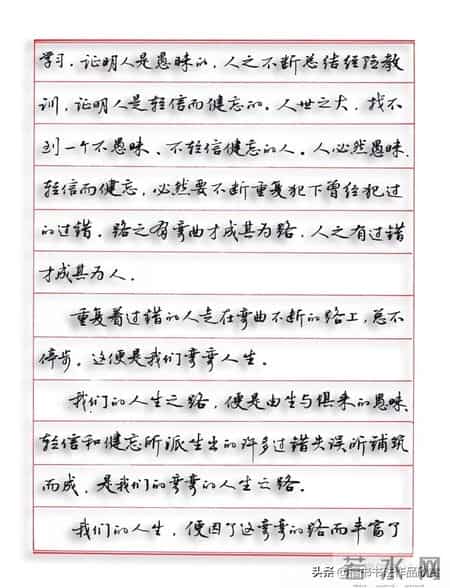 学习，证明人是愚昧的，人之不断总结经验教
训，证明人是轻信而健忘的。人世之大，找不
到一个不愚昧、不轻信健忘的人。人必然愚昧、
轻信而健忘，必然要不断重复犯下曾经犯过
的过错。路之有弯曲才成其为路，人之有过错
才成其为人。
重复着过错的人走在弯曲不断的路上，总不
停步。这便是我们弯弯人生。
我们的人生之路，便是由生与俱来的愚昧、
轻信和健忘所派生出的许多过错失误所铺筑
而成，是我们的弯弯的人生之路。
我们的人生，便因了这弯弯的路而丰富了
头条
若水网